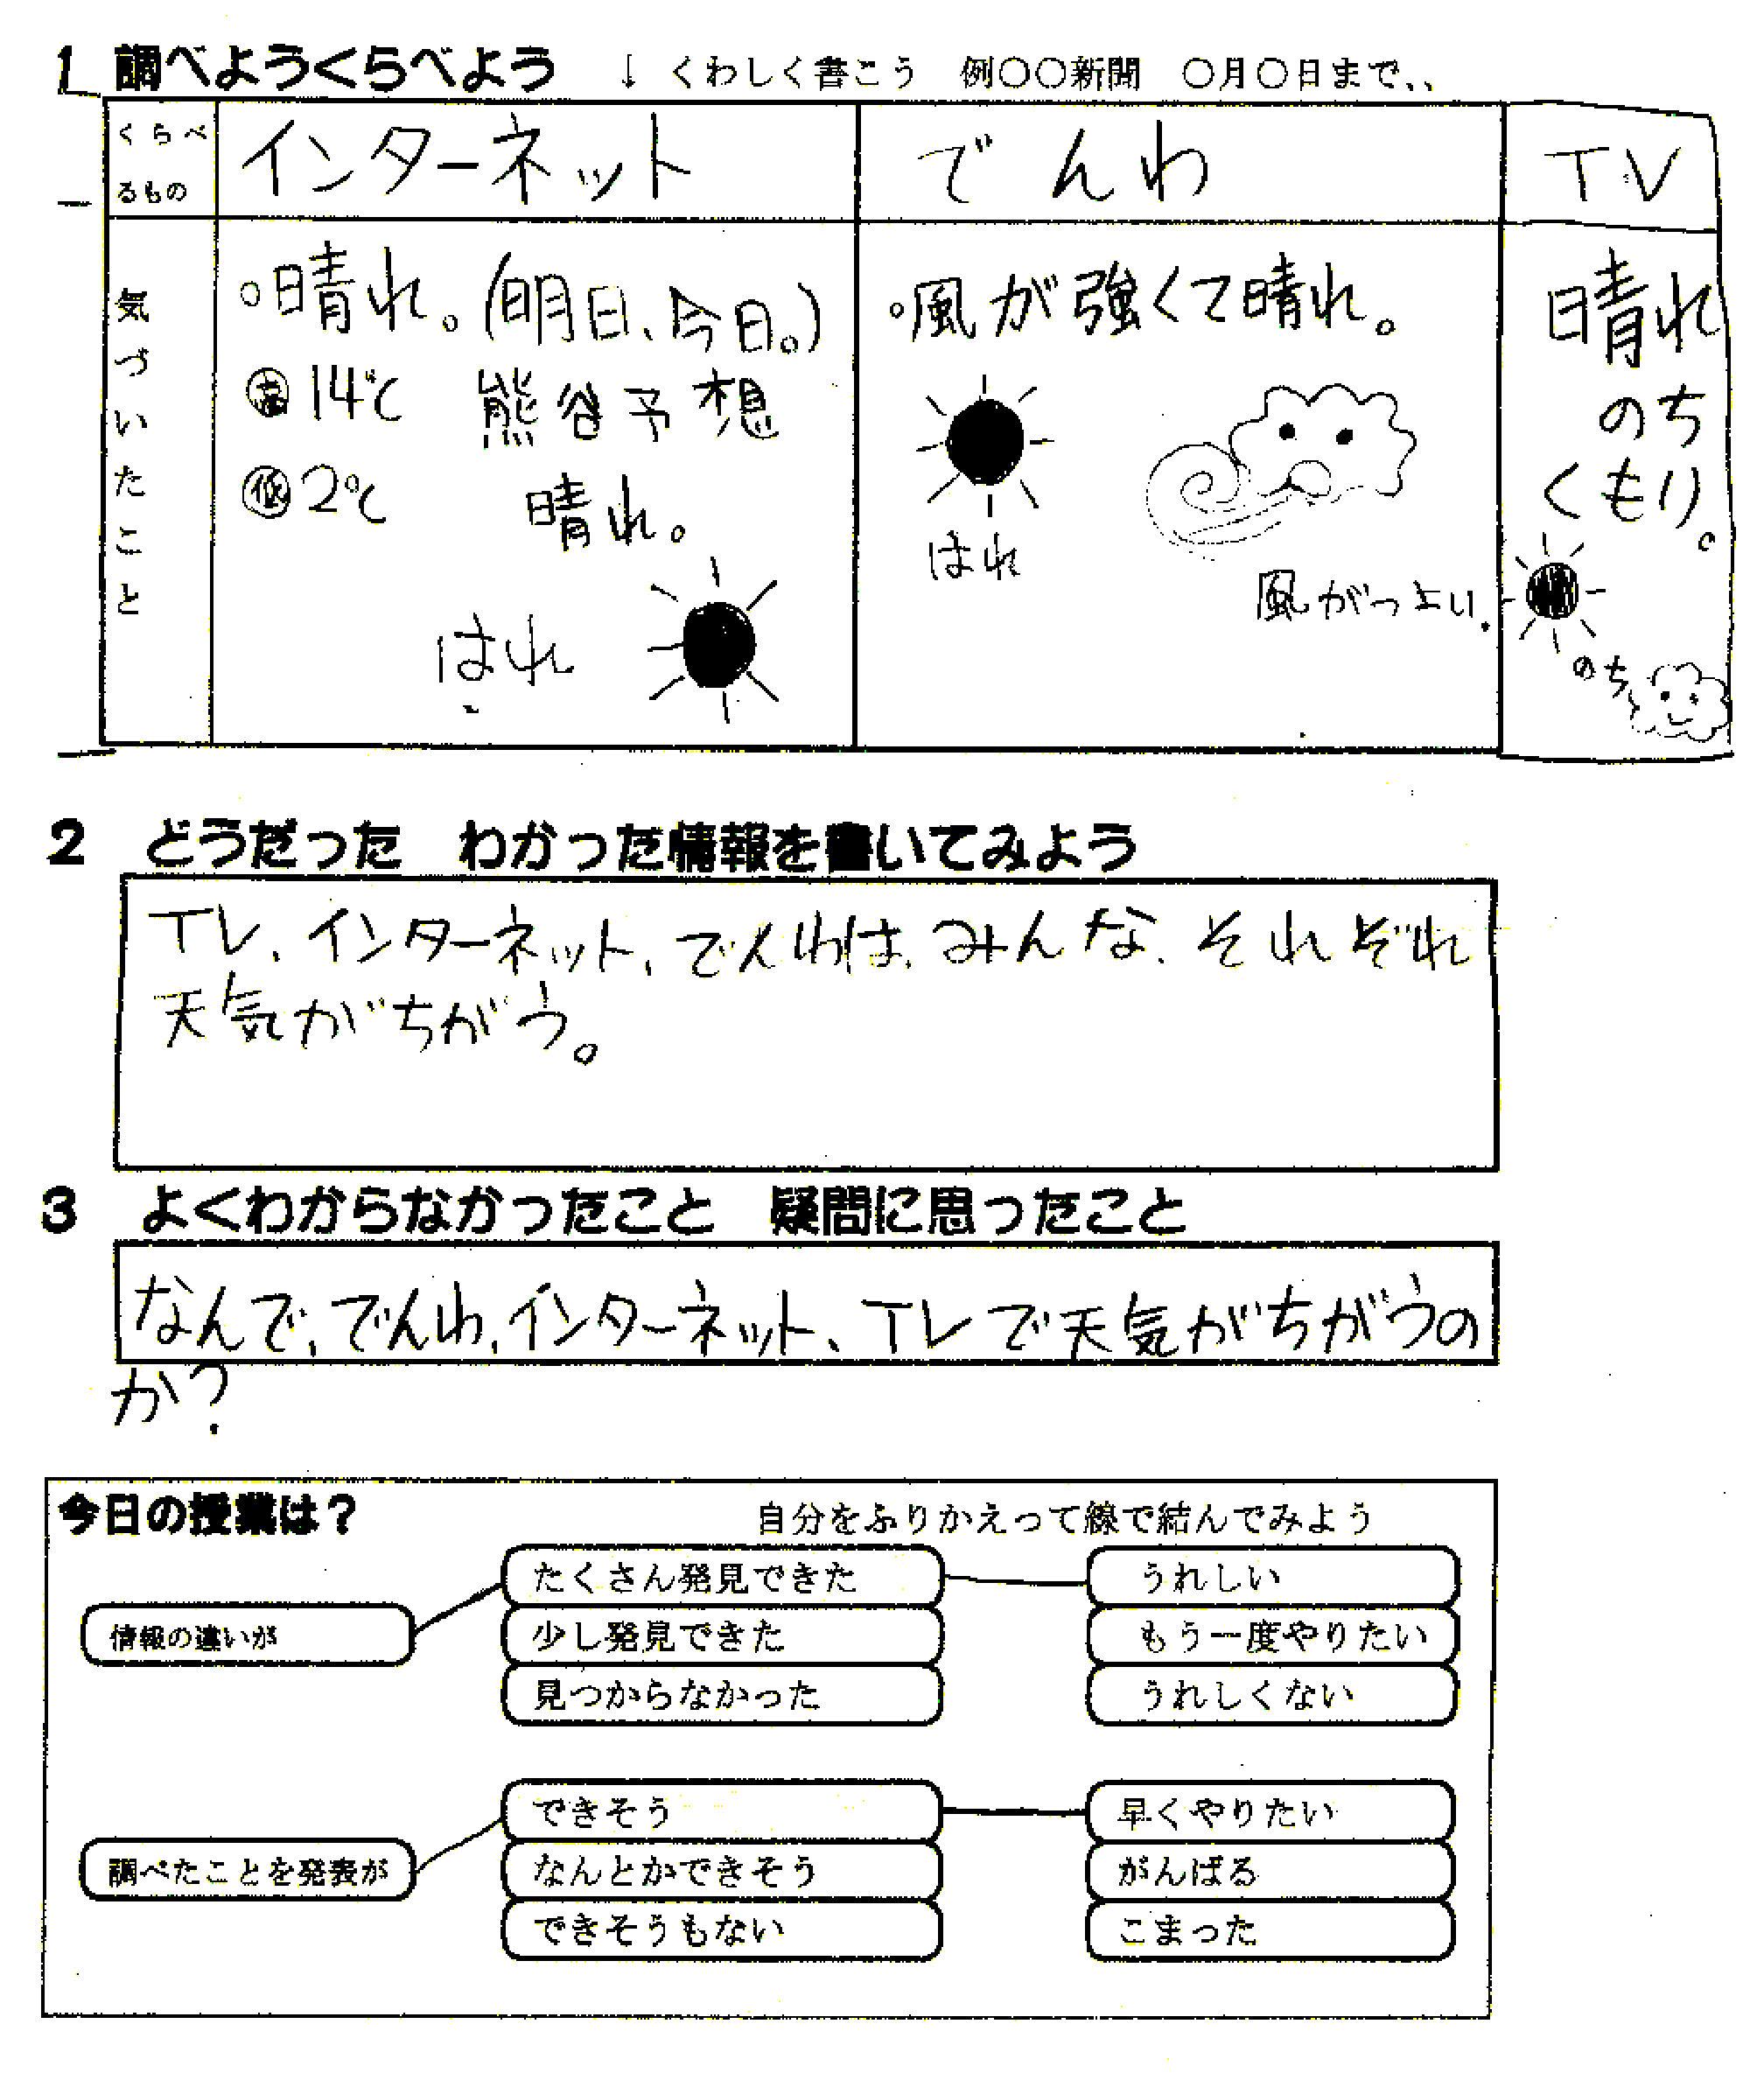 1 調べようくらべよう ↓ くわしく書こう 例○○新聞 ○月○日まで、、
くらべ
るもの
インターネット
でんわ
TV
気づいたこと
○晴れ。(明日、今日。)
高 14℃ 熊谷予想
低 2℃ 晴れ。
はれ
○風が強くて晴れ。
はれ
風がつよい.
晴れ
のち
くもり。
のち
2 どうだった わかった情報を書いてみよう
TV、インターネット、でんわは、みんな、それぞれ
天気がちがう。
3 よくわからなかったこと 疑問に思ったこと
なんで、でんわ、インターネット、TVで天気がちがうの
か?
今日の授業は?
自分をふりかえって線で結んでみよう
情報の違いが
たくさん発見できた
少し発見できた
見つからなかった
うれしい
もう一度やりたい
うれしくない
調べたことを発表が
できそう
なんとかできそう
できそうもない
早くやりたい
がんばる
こまった